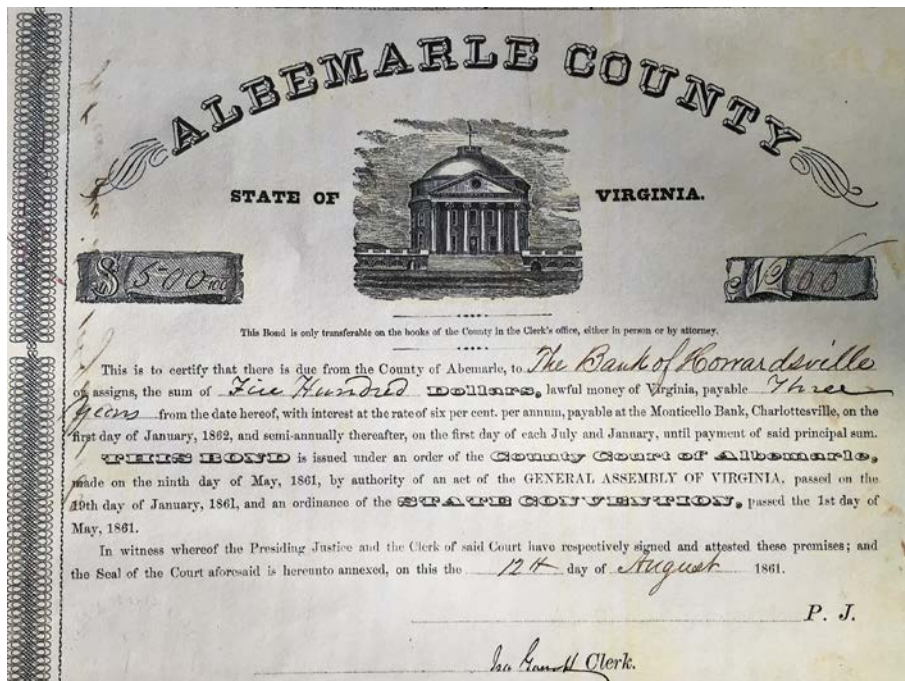 ALBEMARLE COUNTY
STATE OF VIRGINIA.
$ 500 100 No 60
This Bond is only transferable on the books of the County in the Clerk's office, either in person or by attorney.
This is to certify that there is due from the County of Abemarle, to The Bank of Howardsville
or assigns, the sum of Five Hundred Dollars, lawful money of Virginia, payable Three
years from the date hereof, with interest at the rate of six per cent. per annum, payable at the Monticello Bank, Charlottesville, on the
first day of January, 1862, and semi-annually thereafter, on the first day of each July and January, until payment of said principal sum.
THIS BOND is issued under an order of the County Court of Albemarle,
made on the ninth day of May, 1861, by authority of an act of the GENERAL ASSEMBLY OF VIRGINIA, passed on the
19th day of January, 1861, and an ordinance of the STATE CONVENTION, passed the 1st day of
May, 1861.
In witness whereof the Presiding Justice and the Clerk of said Court have respectively signed and attested these premises; and
the Seal of the Court aforesaid is hereunto annexed, on this the 12th day of August 1861.
P. J.
Clerk.